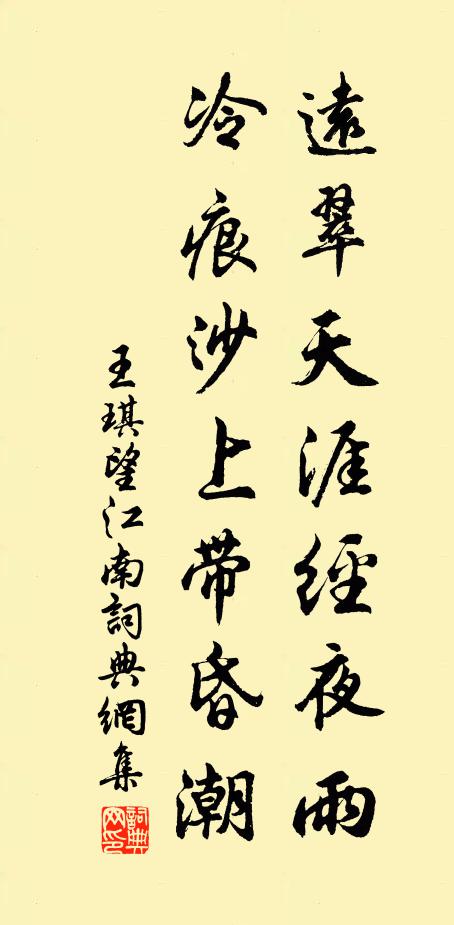 遠翠天涯經夜雨
冷痕沙上带昏潮
王琪望江南詞典網集
詞典網印